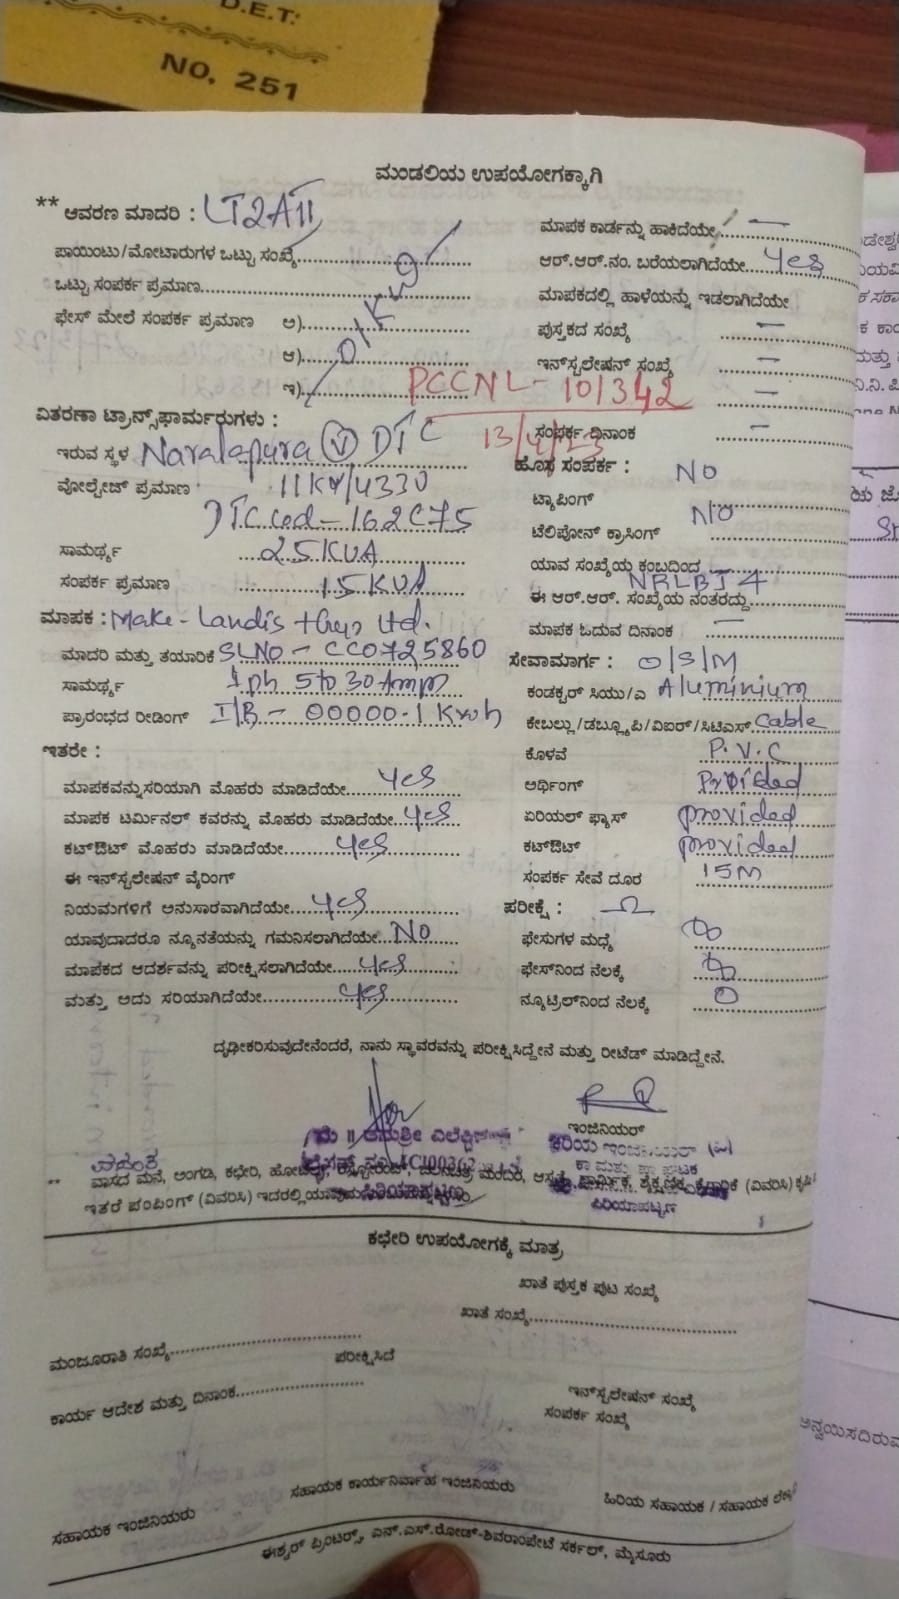 D.E.T:
NO. 251
ಮಂಡಲಿಯ ಉಪಯೋಗಕ್ಕಾಗಿ
** ಆವರಣ ಮಾದರಿ : LT2A11
ಪಾಯಿಂಟು/ಮೋಟಾರುಗಳ ಒಟ್ಟು ಸಂಖ್ಯೆ
ಒಟ್ಟು ಸಂಪರ್ಕ ಪ್ರಮಾಣ
ಫೇಸ್ ಮೇಲೆ ಸಂಪರ್ಕ ಪ್ರಮಾಣ ಅ)
ಆ)
ಇ)
PCCNL - 101342
13/4/23
ವಿತರಣಾ ಟ್ರಾನ್ಸ್‌ಫಾರ್ಮರುಗಳು :
ಇರುವ ಸ್ಥಳ Naralapura (V) DTC
ವೋಲ್ಟೇಜ್ ಪ್ರಮಾಣ 11KV/433V
DTC cod - 162C75
ಸಾಮರ್ಥ್ಯ 25KVA
ಸಂಪರ್ಕ ಪ್ರಮಾಣ 15KVA
ಮಾಪಕ : Make - Landis + Ltd.
ಮಾದರಿ ಮತ್ತು ತಯಾರಿಕೆ SLNO - CC0725860
ಸಾಮರ್ಥ್ಯ 1ph 5 to 30 Amp
ಪ್ರಾರಂಭದ ರೀಡಿಂಗ್ I/R - 00000.1 Kwh
ಇತರೇ :
ಮಾಪಕವನ್ನುಸರಿಯಾಗಿ ಮೊಹರು ಮಾಡಿದೆಯೇ Yes
ಮಾಪಕ ಟರ್ಮಿನಲ್ ಕವರನ್ನು ಮೊಹರು ಮಾಡಿದೆಯೇ Yes
ಕಟ್‌ಔಟ್ ಮೊಹರು ಮಾಡಿದೆಯೇ Yes
ಈ ಇನ್‌ಸ್ಟಲೇಷನ್ ವೈರಿಂಗ್
ನಿಯಮಗಳಿಗೆ ಅನುಸಾರವಾಗಿದೆಯೇ Yes
ಯಾವುದಾದರೂ ನ್ಯೂನತೆಯನ್ನು ಗಮನಿಸಲಾಗಿದೆಯೇ No
ಮಾಪಕದ ಆದರ್ಶವನ್ನು ಪರೀಕ್ಷಿಸಲಾಗಿದೆಯೇ Yes
ಮತ್ತು ಅದು ಸರಿಯಾಗಿದೆಯೇ Yes
ಮಾಪಕ ಕಾರ್ಡನ್ನು ಹಾಕಿದೆಯೇ -
ಆರ್.ಆರ್.ನಂ. ಬರೆಯಲಾಗಿದೆಯೇ Yes
ಮಾಪಕದಲ್ಲಿ ಹಾಳೆಯನ್ನು ಇಡಲಾಗಿದೆಯೇ
ಪುಸ್ತಕದ ಸಂಖ್ಯೆ -
ಇನ್‌ಸ್ಟಲೇಷನ್ ಸಂಖ್ಯೆ -
ಸಂಪರ್ಕ ದಿನಾಂಕ -
ಹೊಸ ಸಂಪರ್ಕ : NO
ಟ್ಯಾಪಿಂಗ್
ಟೆಲಿಫೋನ್ ಕ್ರಾಸಿಂಗ್ NO
ಯಾವ ಸಂಖ್ಯೆಯ ಕಂಬದಿಂದ -
ಈ ಆರ್.ಆರ್. ಸಂಖ್ಯೆಯ ನಂತರದ್ದು NRLBJ4
ಮಾಪಕ ಓದುವ ದಿನಾಂಕ -
ಸೇವಾಮಾರ್ಗ : O/S/M
ಕಂಡಕ್ಟರ್ ಸಿಯು/ಎ Aluminium
ಕೇಬಲ್ಲು/ಡಬ್ಲ್ಯೂಪಿ/ವಿಐಆರ್/ಸಿಟಿಎಸ್ Cable
ಕೊಳವೆ P.V.C
ಅರ್ಥಿಂಗ್ Provided
ಏರಿಯಲ್ ಫ್ಯಾಸ್ provided
ಕಟ್‌ಔಟ್ provided
ಸಂಪರ್ಕ ಸೇವೆ ದೂರ 15M
ಪರೀಕ್ಷೆ : Ω
ಫೇಸುಗಳ ಮಧ್ಯೆ ∞
ಫೇಸ್‌ನಿಂದ ನೆಲಕ್ಕೆ ∞
ನ್ಯೂಟ್ರಿಲ್‌ನಿಂದ ನೆಲಕ್ಕೆ 0
ದೃಢೀಕರಿಸುವುದೇನೆಂದರೆ, ನಾನು ಸ್ಥಾವರವನ್ನು ಪರೀಕ್ಷಿಸಿದ್ದೇನೆ ಮತ್ತು ರೀಟೆಡ್ ಮಾಡಿದ್ದೇನೆ.
ಇಂಜಿನಿಯರ್
ಪಿರಿಯಾಪಟ್ಟಣ
ಪಿರಿಯಾಪಟ್ಟಣ
** ವಾಸದ ಮನೆ, ಅಂಗಡಿ, ಕಛೇರಿ,
ಇತರೆ ಪಂಪಿಂಗ್ (ವಿವರಿಸಿ)
ಕಛೇರಿ ಉಪಯೋಗಕ್ಕೆ ಮಾತ್ರ
ಖಾತೆ ಪುಸ್ತಕ ಪುಟ ಸಂಖ್ಯೆ
ಖಾತೆ ಸಂಖ್ಯೆ
ಮಂಜೂರಾತಿ ಸಂಖ್ಯೆ
ಪರೀಕ್ಷಿಸಿದೆ
ಕಾರ್ಯ ಆದೇಶ ಮತ್ತು ದಿನಾಂಕ
ಇನ್‌ಸ್ಟಲೇಷನ್ ಸಂಖ್ಯೆ
ಸಂಪರ್ಕ ಸಂಖ್ಯೆ
ಸಹಾಯಕ ಇಂಜಿನಿಯರು
ಸಹಾಯಕ ಕಾರ್ಯನಿರ್ವಾಹ ಇಂಜಿನಿಯರು
ಹಿರಿಯ ಸಹಾಯಕ / ಸಹಾಯಕ
ಈಶ್ವರ್ ಪ್ರಿಂಟರ್ಸ್, ಎನ್.ಎಸ್.ರೋಡ್-ಶಿವರಾಂಪೇಟೆ ಸರ್ಕಲ್, ಮೈಸೂರು